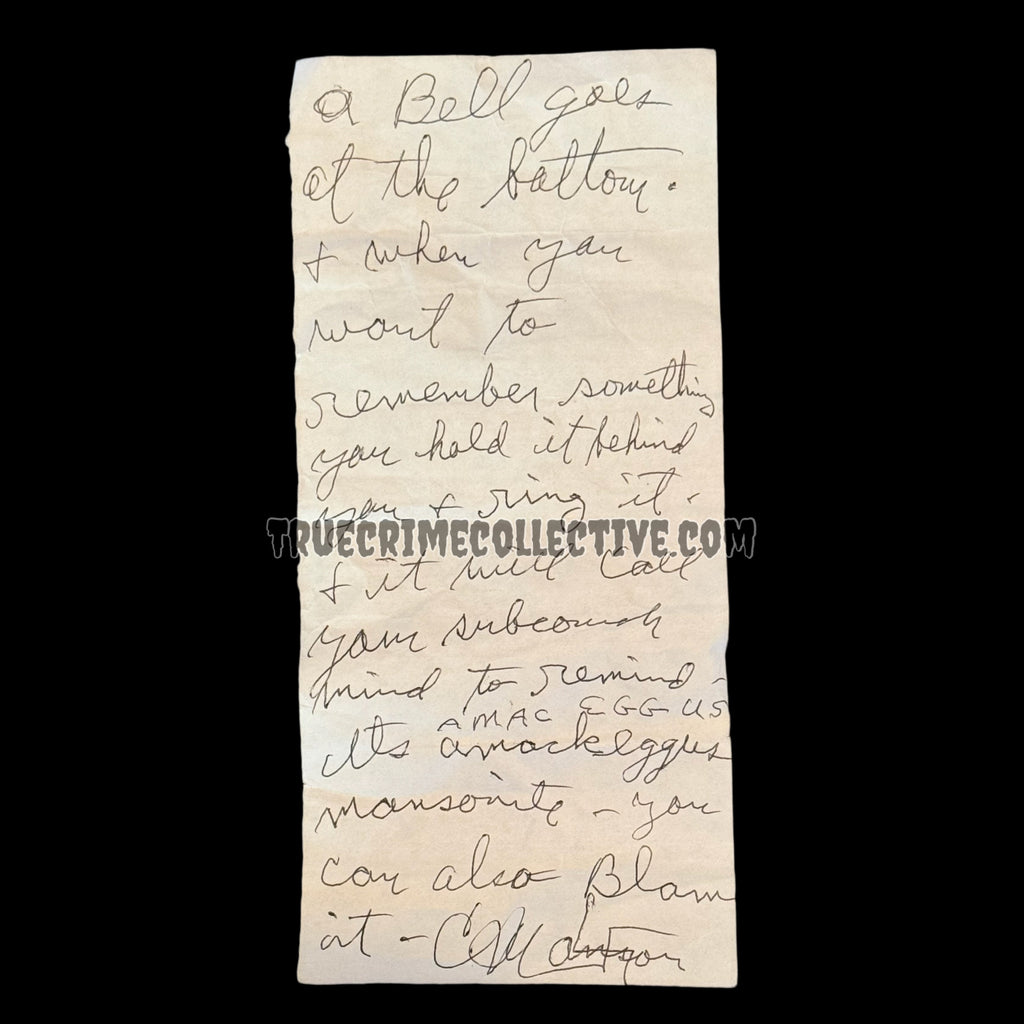 a Bell goes
at the bottom.
+ when you
want to
remember something
you hold it behind
you + ring it.
TRUECRIMECOLLECTIVE.COM
+ it will call
your subcounsh
mind to remind -
AMAC EGGUS
its amackeggus
mansonite - you
can also Blam
it - C Manson